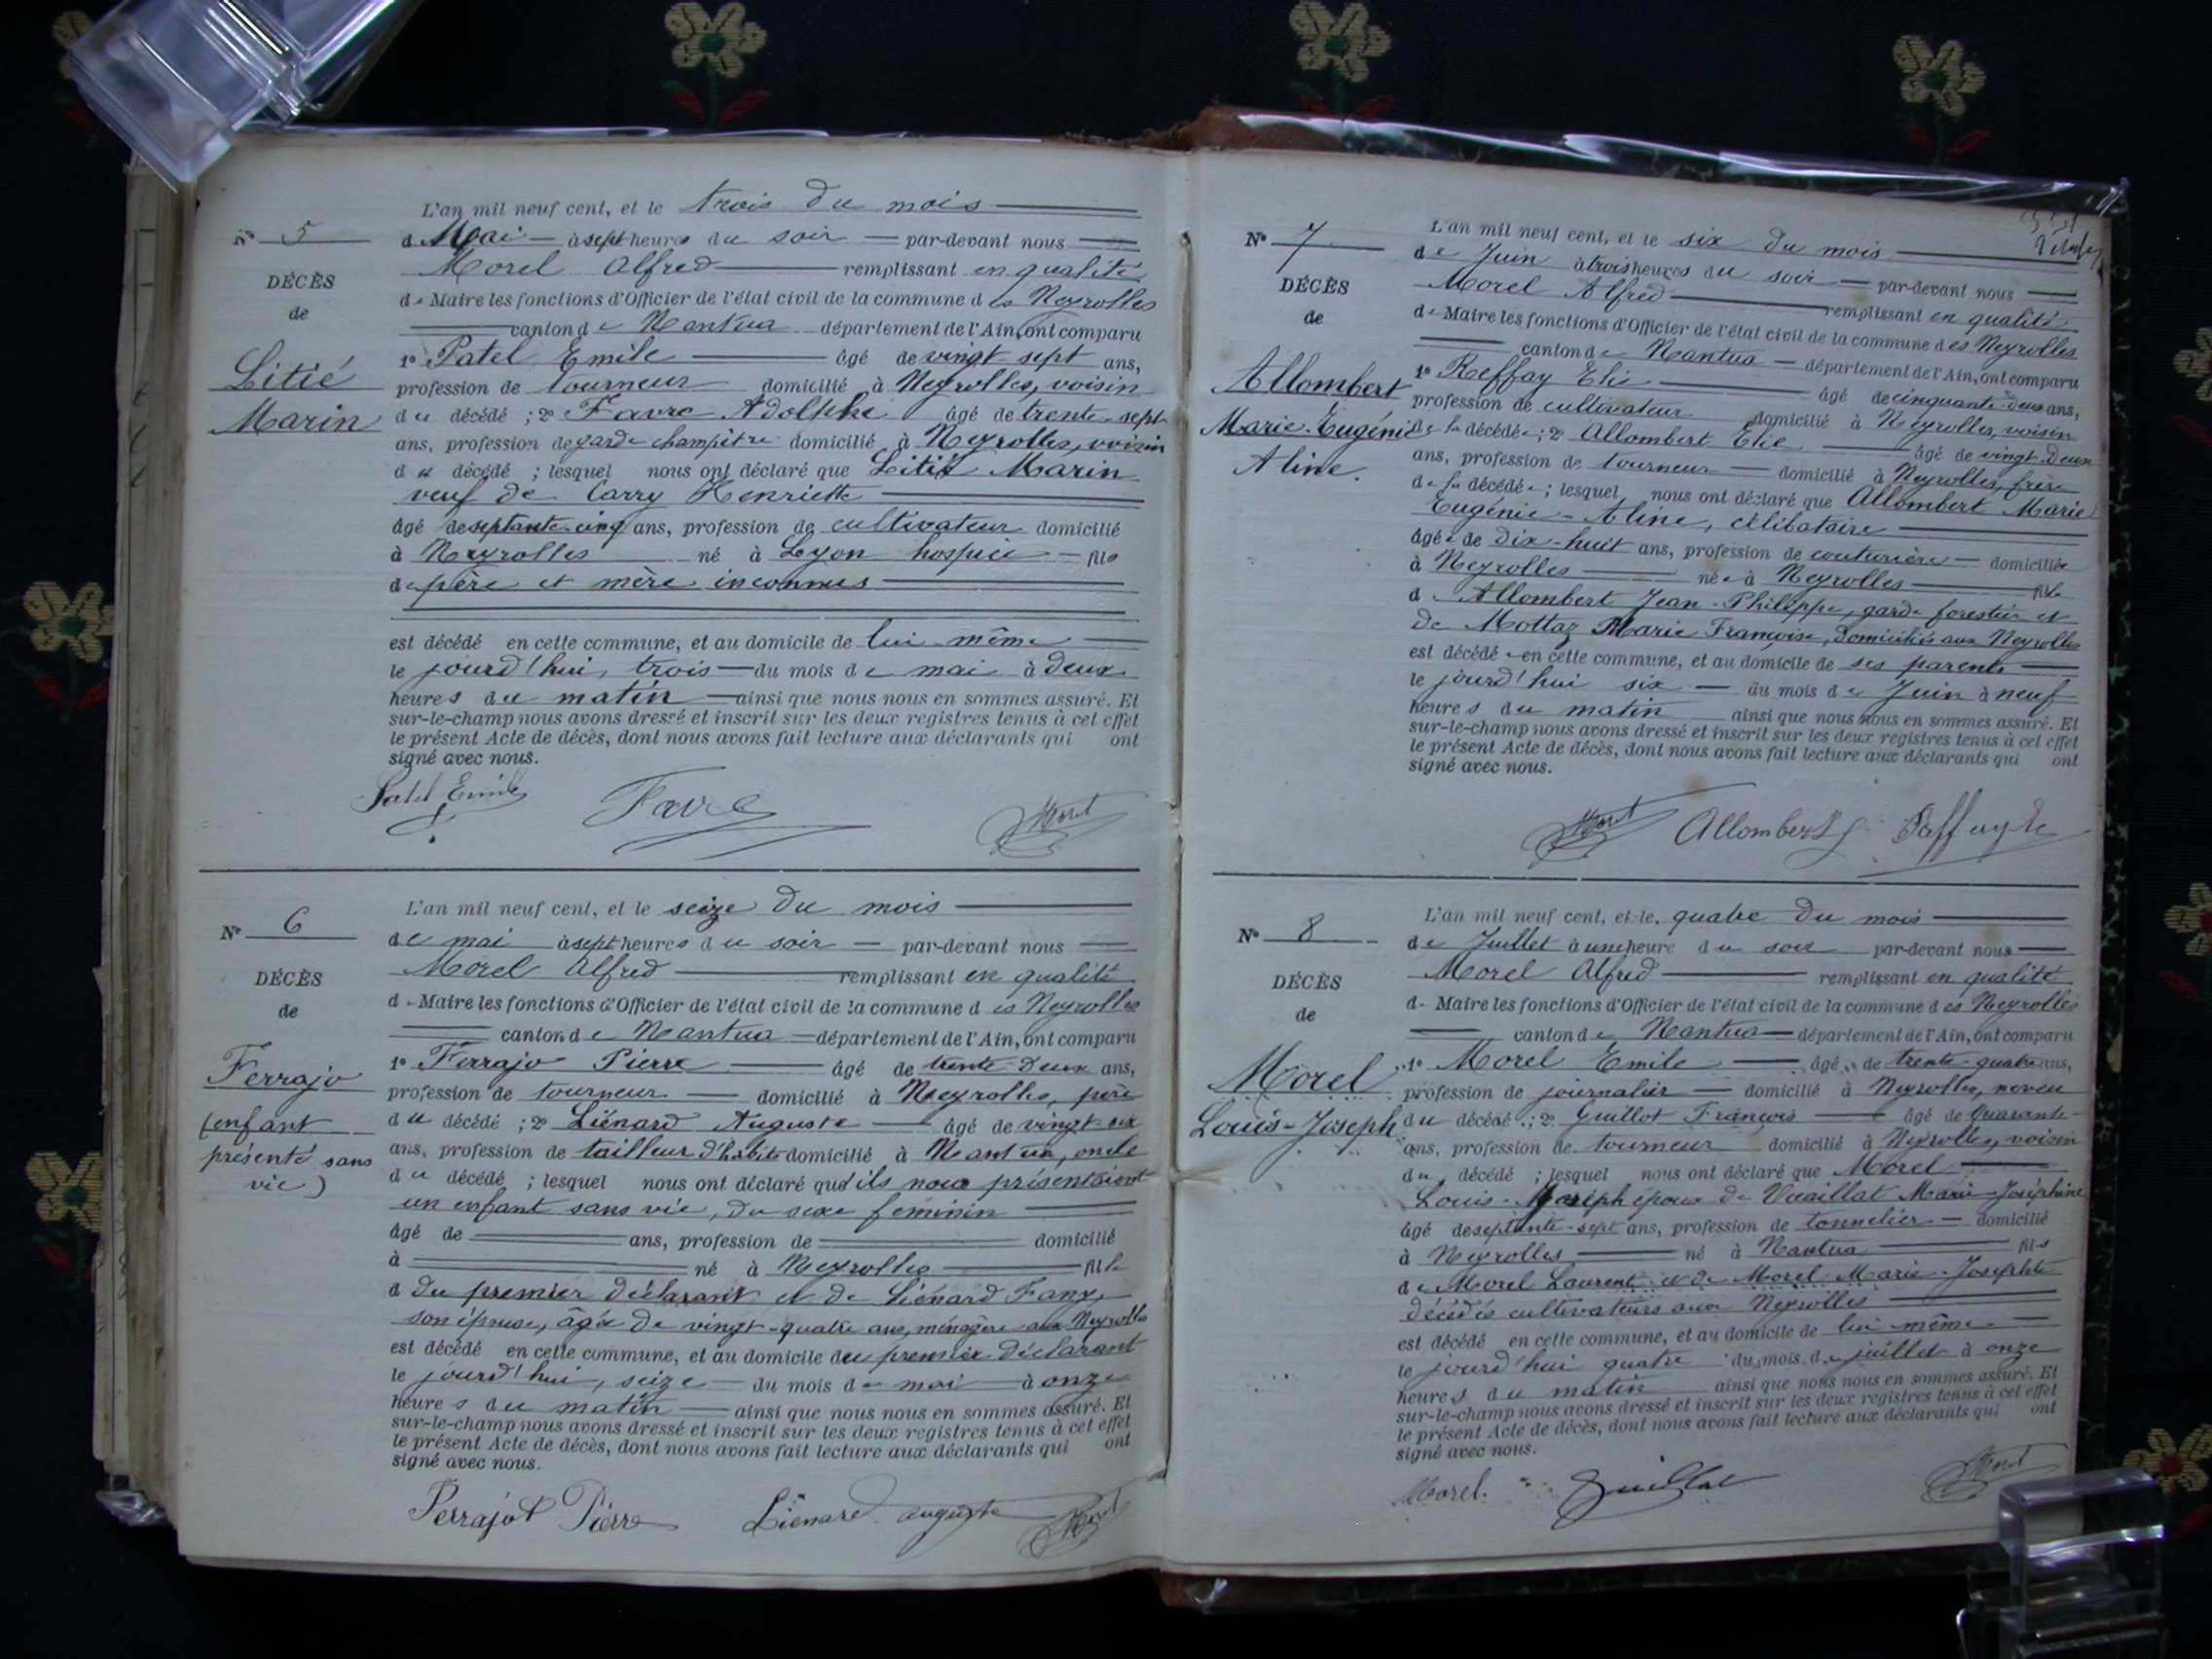 L'an mil neuf cent, et le trois du mois
N° 5
de Mai à sept heures du soir par-devant nous
Morel Alfred remplissant en qualité
DÉCÈS
de Maire les fonctions d'Officier de l'état civil de la commune des Neyrolles
de
canton de Nantua département de l'Ain, ont comparu
1° Patel Emile âgé de vingt-sept ans,
Litié
profession de tourneur domicilié à Neyrolles, voisin
Marin
du décédé ; 2° Favre Adolphe âgé de trente-sept
ans, profession de garde champêtre domicilié à Neyrolles, voisin
du décédé ; lesquel nous ont déclaré que Litié Marin
veuf de Carry Henriette
âgé de septante-cinq ans, profession de cultivateur domicilié
à Neyrolles né à Lyon hospice fils
de père et mère inconnus
est décédé en cette commune, et au domicile de lui-même
le jourd'hui, trois du mois de mai à deux
heures du matin ainsi que nous nous en sommes assuré. Et
sur-le-champ nous avons dressé et inscrit sur les deux registres tenus à cet effet
le présent Acte de décès, dont nous avons fait lecture aux déclarants qui ont
signé avec nous.
Patel Emile Favre Morel
L'an mil neuf cent, et le seize du mois
N° 6
de mai à sept heures du soir par-devant nous
Morel Alfred remplissant en qualité
DÉCÈS
de Maire les fonctions d'Officier de l'état civil de la commune des Neyrolles
de
canton de Nantua département de l'Ain, ont comparu
1° Ferrajo Pierre âgé de trente-deux ans,
Ferrajo
profession de tourneur domicilié à Neyrolles, père
(enfant
du décédé ; 2° Liénard Auguste âgé de vingt-six
présenté sans
ans, profession de tailleur d'habits domicilié à Nantua, oncle
vie)
du décédé ; lesquel nous ont déclaré qu'ils nous présentaient
un enfant sans vie, du sexe féminin
âgé de ans, profession de domicilié
à né à Neyrolles fille
d du premier déclarant et de Liénard Fany,
son épouse, âgée de vingt-quatre ans, ménagère aux Neyrolles
est décédé en cette commune, et au domicile du premier déclarant
le jourd'hui, seize du mois de mai à onze
heures du matin ainsi que nous nous en sommes assuré. Et
sur-le-champ nous avons dressé et inscrit sur les deux registres tenus à cet effet
le présent Acte de décès, dont nous avons fait lecture aux déclarants qui ont
signé avec nous.
Perrajot Pierre Liénard auguste Morel
L'an mil neuf cent, et le six du mois
N° 7
de Juin à trois heures du soir par-devant nous
Morel Alfred remplissant en qualité
DÉCÈS
de Maire les fonctions d'Officier de l'état civil de la commune des Neyrolles
de
canton de Nantua département de l'Ain, ont comparu
1° Reffay Elie âgé de cinquante-deux ans,
Allombert
profession de cultivateur domicilié à Neyrolles, voisin
Marie-Eugénie
de la décédée ; 2° Allombert Elie âgé de vingt-deux
Aline.
ans, profession de tourneur domicilié à Neyrolles, frère
de la décédée ; lesquel nous ont déclaré que Allombert Marie
Eugénie-Aline, célibataire
âgée de dix-huit ans, profession de couturière domiciliée
à Neyrolles née à Neyrolles fille
de Allombert Jean-Philippe, garde forestier et
de Mottaz Marie Françoise, domiciliés aux Neyrolles
est décédée en cette commune, et au domicile de ses parents
le jourd'hui six du mois de Juin à neuf
heures du matin ainsi que nous nous en sommes assuré. Et
sur-le-champ nous avons dressé et inscrit sur les deux registres tenus à cet effet
le présent Acte de décès, dont nous avons fait lecture aux déclarants qui ont
signé avec nous.
Morel Allombert Reffay Elie
L'an mil neuf cent, et le quatre du mois
N° 8
de Juillet à une heure du soir par-devant nous
Morel Alfred remplissant en qualité
DÉCÈS
de Maire les fonctions d'Officier de l'état civil de la commune des Neyrolles
de
canton de Nantua département de l'Ain, ont comparu
1° Morel Emile âgé de trente-quatre ans,
Morel
profession de journalier domicilié à Neyrolles, neveu
Louis-Joseph
du décédé ; 2° Guillot François âgé de quarante-
ans, profession de tourneur domicilié à Neyrolles, voisin
du décédé ; lesquel nous ont déclaré que Morel
Louis-Joseph époux de Vuaillat Marie-Joséphine
âgé de septante-sept ans, profession de tonnelier domicilié
à Neyrolles né à Nantua fils
de Morel Laurent et de Morel Marie-Josephte
décédés cultivateurs aux Neyrolles
est décédé en cette commune, et au domicile de lui-même
le jourd'hui quatre du mois de juillet à onze
heures du matin ainsi que nous nous en sommes assuré. Et
sur-le-champ nous avons dressé et inscrit sur les deux registres tenus à cet effet
le présent Acte de décès, dont nous avons fait lecture aux déclarants qui ont
signé avec nous.
Morel. Guillot Morel